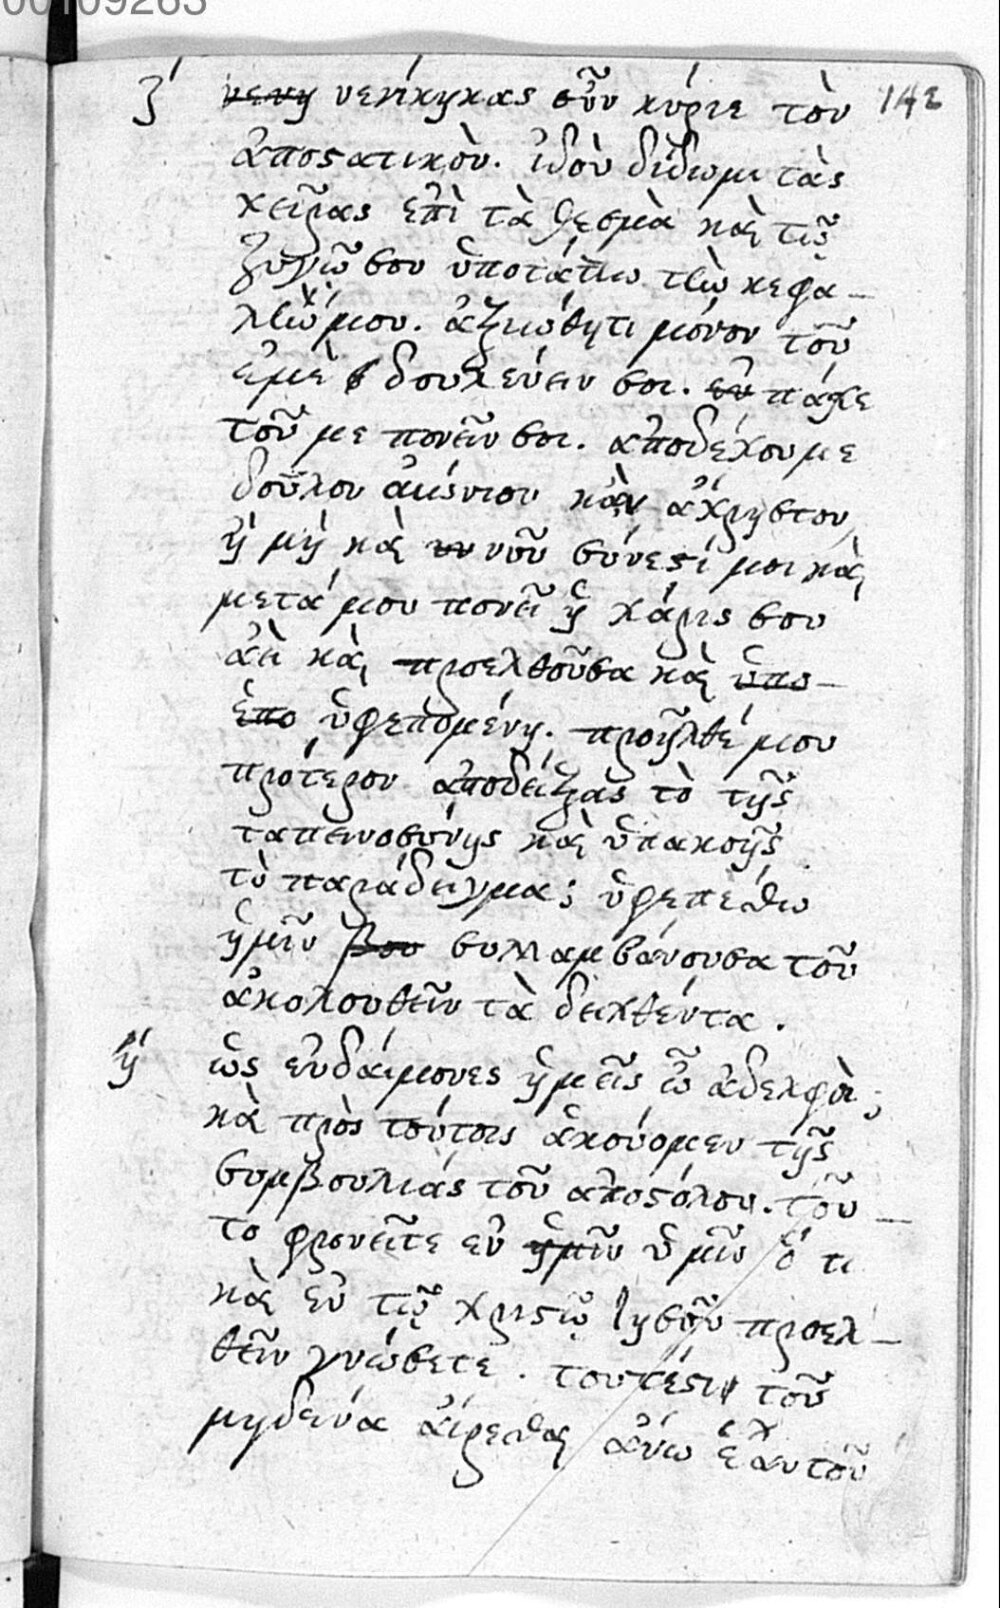 00109263
142
ζ' νενη νενίκηκας οὖν κύριε τὸν
ἀποστατικὸν. ἰδοὺ δίδωμι τὰς
χεῖρας ἐπὶ τὰ δεσμὰ καὶ τῷ
ζυγῷ σου ὑποτάττω τὴν κεφα-
λήν μου. ἀξιώθητι μόνον τοῦ
ἐμὲ δουλεύειν σοι. εὐ
τοῦ με πονεῖν σοι. ἀποδέχου με
δοῦλον ἀκόνιον κἂν ἄχρηστον
ἢ μὴ καὶ νν νοῦ σύνεσί μοι καὶ
μετά μου πονεῖ ἡ χάρις σου
ἀεὶ καὶ προελθοῦσα καὶ ὑπο-
ἑπο ὑφεπομένη. προῆλθέ μου
πρότερον ἀποδείξας τὸ τῆς
ταπεινοσύνης καὶ ὑπακοῆς
τὸ παράδειγμα; ὑφεπέσθω
ἡμῖν βου συλλαμβάνουσα τοῦ
ἀκολουθεῖν τὰ δειχθέντα.
η' ὡς εὐδαίμονες ἡμεῖς ὦ ἀδελφοὶ;
καὶ πρὸς τούτοις ἀκούομεν τῆς
συμβουλιάς τοῦ ἀποστόλου. τοῦ-
το φρονεῖτε ἐν ἡμῖν ὑμῖν ὅ τι
καὶ ἐν τῷ χριστῷ Ἰησοῦν προελ-
θεῖν γνώσετε. τουτέστι τοῦ
μηδείνα αἴρεσθαι ἄνω ἑαυτοῦ